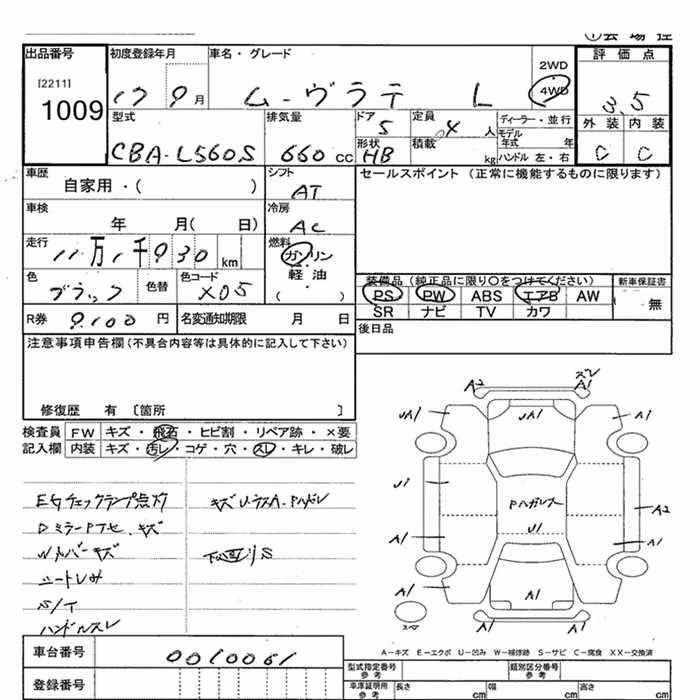 ①会場控
出品番号 初度登録年月 車名・グレード 2WD 評価点
[2211] 1009 17 9月 ムーヴラテ L 4WD 3.5
型式 排気量 ドア 定員 ディーラー・並行 外装 内装
CBA-L560S 660cc 5 4人 モデル年式 年 C C
形状 積載
HB kg ハンドル 左・右
車歴 シフト セールスポイント(正常に機能するものに限ります)
自家用・( ) AT
車検 冷房
年 月( 日) AC
走行 燃料
11万1千930km ガソリン
色 色替 色コード 軽油
ブラック X05 ( )
装備品(純正品に限り○をつけてください) 新車保証書
PS PW ABS エアB AW 無
SR ナビ TV カワ
R券 9,100円 名変通知期限 月 日
後日品
注意事項申告欄(不具合内容等は具体的に記入して下さい)
修復歴 有〔箇所 〕
検査員 FW キズ・飛石・ヒビ割・リペア跡・×要
記入欄 内装 キズ・汚レ・コゲ・穴・スレ・キレ・破レ
EGチェックランプ点灯
キズ
キズ
シートしみ
S/T
ハンドルスレ
A2 ズレ A1
UA1 UA1 A1
U1 Pハガレ A2
U1
A1 A1
A1 A1
スペア A1
A-キズ E-エクボ U-凹み W-補修跡 S-サビ C-腐食 XX-交換済
車台番号 0010061
登録番号
型式指定番号 参考 類別区分番号 参考
車庫証明用 参考 長さ cm 幅 cm 高さ cm